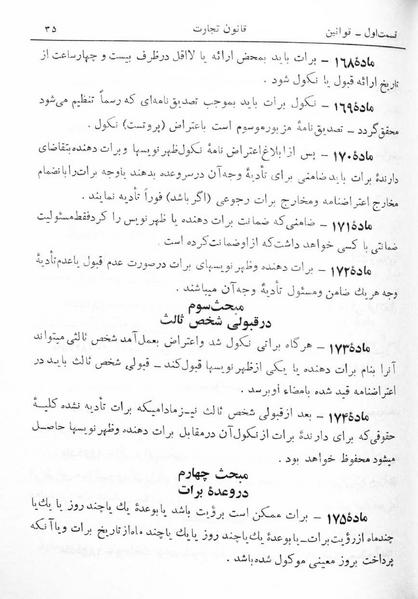 قسمت اول ـ قوانین قانون تجارت ۳۵
مادهٔ ۱۶۸ – برات باید بمحض ارائه یا لااقل درظرف بیست و چهارساعت از
تاریخ ارائه قبول یا نکول شود .
مادهٔ ۱۶۹ – نکول برات باید بموجب تصدیق‌نامه‌ای که رسماً تنظیم می‌شود
محقق گردد ـ تصدیق‌نامهٔ مزبور موسوم است باعتراض (پروتست) نکول .
مادهٔ ۱۷۰ – پس از ابلاغ اعتراض نامهٔ نکول ظهرنویسها و برات دهنده بتقاضای
دارندهٔ برات باید ضامنی برای تأدیهٔ وجه آن درسر وعده بدهند یا وجه برات را بانضمام
مخارج اعتراضنامه ومخارج برات رجوعی (اگر باشد) فوراً تأدیه نمایند .
مادهٔ ۱۷۱ – ضامنی‌که ضمانت برات دهنده یا ظهر نویس را کرد فقط مسئولیت
ضمانتی با کسی خواهد داشت‌که از او ضمانت کرده است
مادهٔ ۱۷۲ – برات دهنده وظهرنویسهای برات درصورت عدم قبول یا عدم تأدیهٔ
وجه هریك ضامن ومسئول تأدیهٔ وجه آن میباشند .
مبحث سوم
در قبولی شخص ثالث
مادهٔ ۱۷۳ – هرگاه براتی نکول شد واعتراض بعمل آمد شخص ثالثی میتواند
آنرا بنام برات دهنده یا یکی از ظهرنویسها قبول کند ـ قبولی شخص ثالث باید در
اعتراضنامه قید شده بامضاء او برسد .
مادهٔ ۱۷۴ – بعد از قبولی شخص ثالث نیز مادامیکه برات تأدیه نشده کلیهٔ
حقوقی‌که برای دارندهٔ برات از نکول آن درمقابل برات دهنده وظهرنویسها حاصل
میشود محفوظ خواهد بود .
مبحث چهارم
در وعدهٔ برات
مادهٔ ۱۷۵ – برات ممکن است برؤیت باشد یا بوعدهٔ یك یا چند روز یا یك یا
چند ماه از رؤیت برات ـ یا بوعدهٔ یك یا چند روز یا یك یا چند ماه از تاریخ برات ویا آنکه
پرداخت بروز معینی موکول شده باشد .